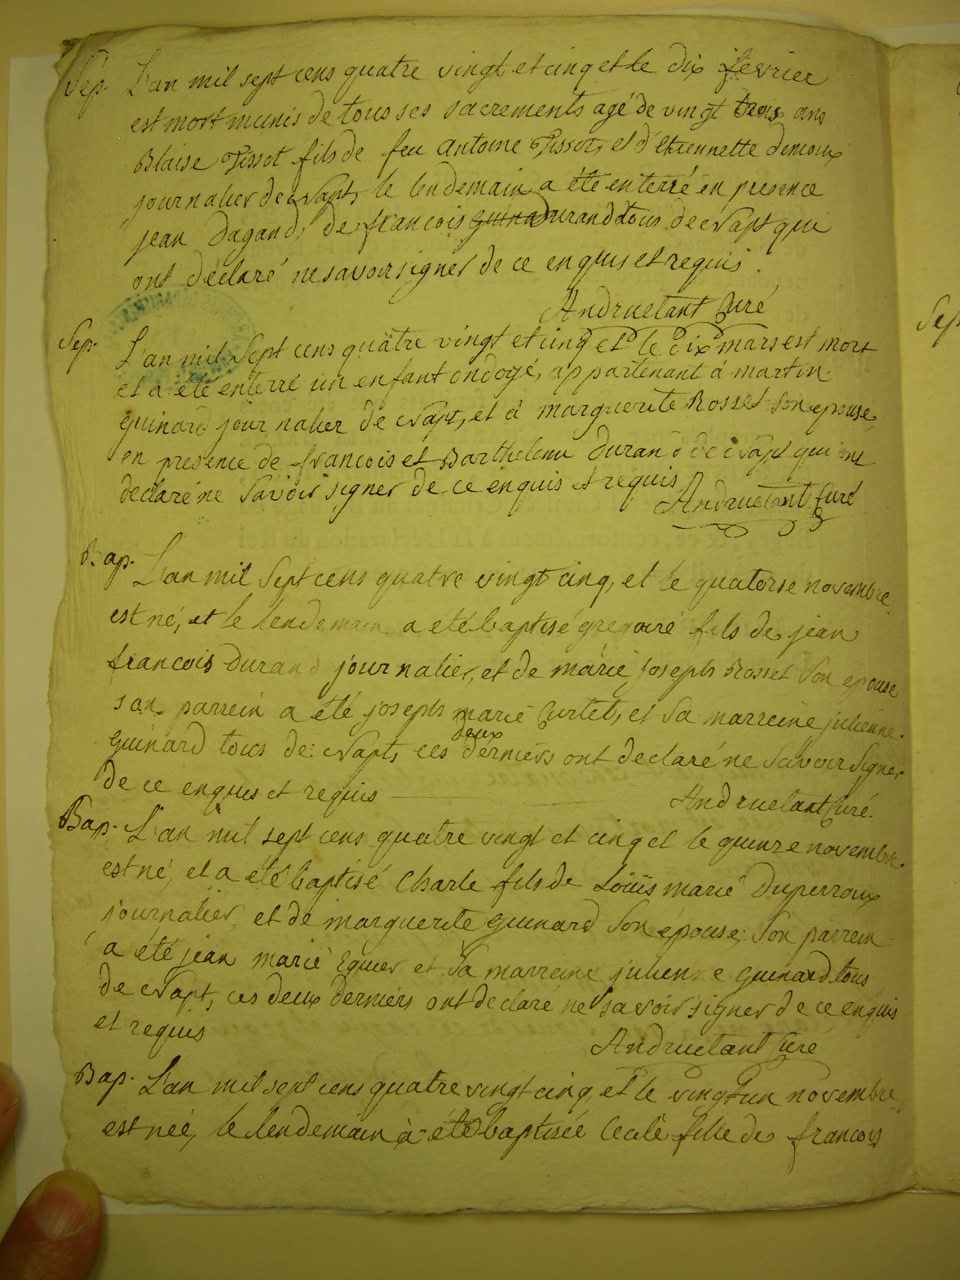 Sep. L'an mil sept cens quatre vingt et cinq et le dix fevrier
est mort munis de tous ses sacrements agé de vingt trois ans
Blaise Tissot fils de feu antoine Tissot, et d'Etiennette demoux
journalier de crapt, le lendemain a été enterré en presence
jean Dagand, de francois guinard Durand tous de crapt qui
ont déclaré ne savoir signer de ce enquis et requis.
Andruetant Curé
Sep. L'an mil sept cens quatre vingt et cinq et le dix mars est mort
et a été enterré un enfant ondoyé, appartenant à martin
guinard journalier de crapt, et à marguerite Rosset son epouse
en presence de francois et Barthelemi Durand de crapt qui ont
declaré ne savoir signer de ce enquis et requis
Andruetant Curé
Bap. L'an mil sept cens quatre vingt cinq, et le quatorse novembre
est né, et le lendemain a eté baptisé gregoire fils de jean
francois Durand journalier, et de marie joseph Rosset son epouse
son parrein a été joseph marie Curtet, et sa marreine julienne
deux
guinard tous de crapt, ces derniers ont declaré ne savoir signer
de ce enquis et requis
Andruetant Curé.
Bap. L'an mil sept cens quatre vingt et cinq et le quinze novembre
est né, et a été baptisé Charle fils de Loüis marie Duperroux
journalier, et de marguerite guinard son épouse, son parrein
a été jean marie Eguier et sa marreine julienne guinard tous
de crapt, ces deux derniers ont declaré ne savoir signer de ce enquis
et requis
Andruetant Curé
Bap. L'an mil sept cens quatre vingt cinq, et le vingt un novembre
est née, le lendemain a été baptisée Cecile fille de francois